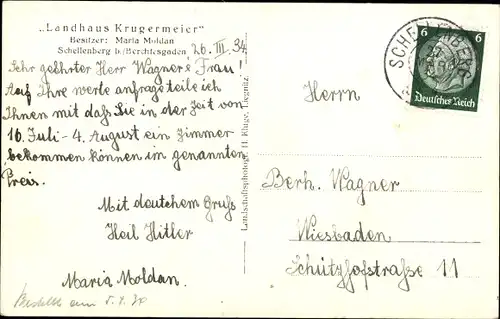 „Landhaus Krugermeier"
Besitzer: Maria Moldan
Schellenberg b/Berchtesgaden
26. III. 34
Sehr geehrter Herr Wagner & Frau!
Auf Ihre werte anfrage teile ich
Ihnen mit daß Sie in der Zeit von
16. Juli - 4. August ein Zimmer
bekommen können im genannten
Preis.
Mit deutchem Gruß
Heil Hitler
Maria Moldan.
Bestellt am
Landschaftsphotogr. H. Kluge, Liegnitz.
SCHELLENBERG
6 6
Deutsches Reich
Herrn
Berh. Wagner
Wiesbaden
Schützhofstraße 11